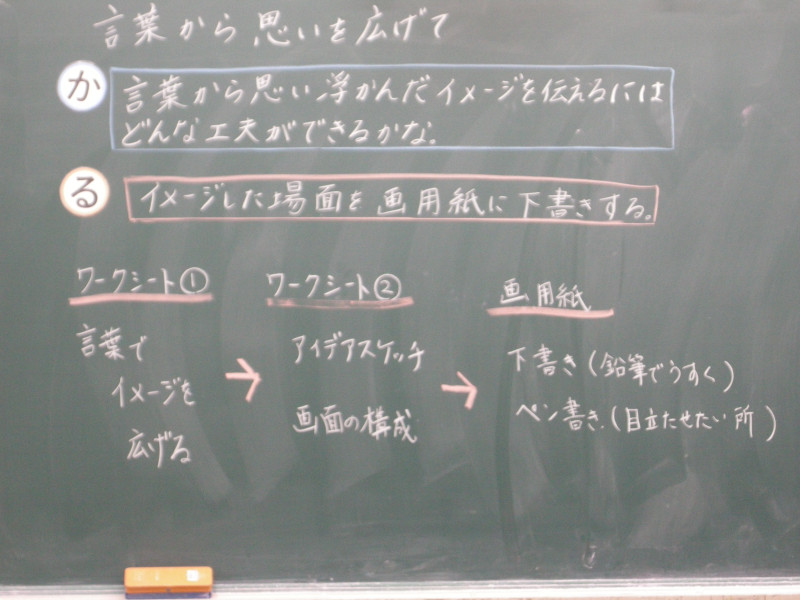 言葉から思いを広げて
か 言葉から思い浮かんだイメージを伝えるには
どんな工夫ができるかな.
る イメージした場面を画用紙に下書きする。
ワークシート①
言葉で
イメージを
広げる
→
ワークシート②
アイデアスケッチ
画面の構成
→
画用紙
下書き(鉛筆でうすく)
ペン書き.(目立たせたい所)